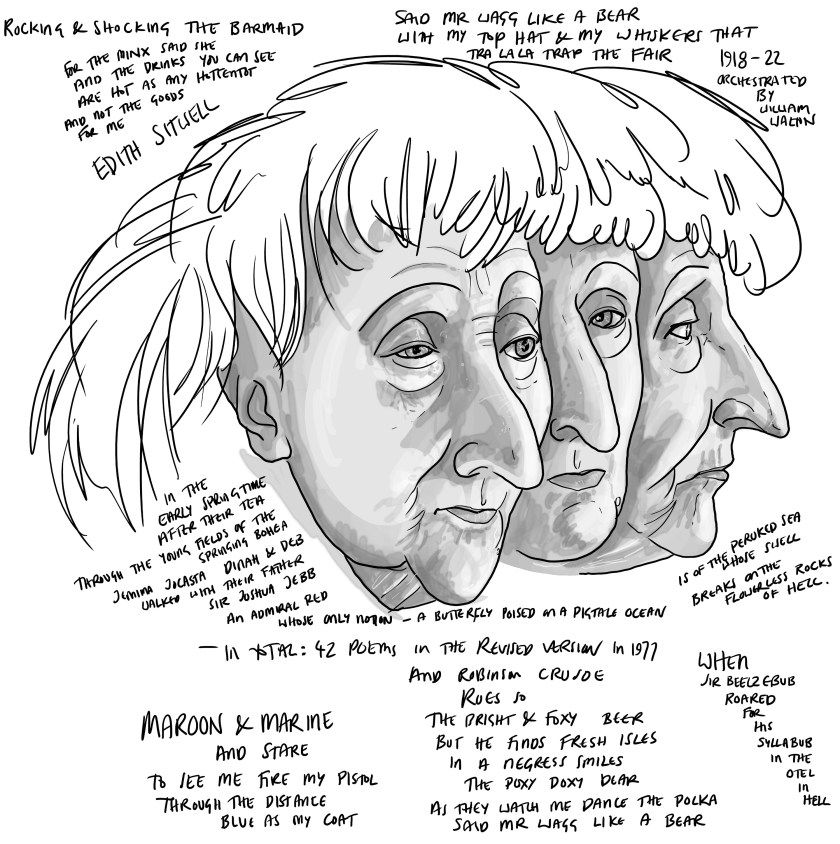 ROCKING & SHOCKING THE BARMAID
FOR THE MINX SAID SHE
AND THE DRINKS YOU CAN SEE
ARE HOT AS ANY HOTTENTOT
AND NOT THE GOODS
FOR ME
EDITH SITWELL
SAID MR WAGG LIKE A BEAR
WITH MY TOP HAT & MY WHISKERS THAT
TRA LA LA TRAP THE FAIR
1918-22
ORCHESTRATED
BY
WILLIAM
WALTON
IN THE
EARLY SPRINGTIME
AFTER THEIR TEA
THROUGH THE YOUNG FIELDS OF THE
SPRINGING BOHEA
JEMIMA JOCASTA DINAH & DEB
WALKED WITH THEIR FATHER
SIR JOSHUA JEBB
AN ADMIRAL RED
WHOSE ONLY NOTION - A BUTTERFLY POISED ON A PIGTALE OCEAN
IS OF THE PERUKED SEA
WHOSE SWELL
BREAKS ON THE
FLOWERLESS ROCKS
OF HELL.
- IN TOTAL: 42 POEMS IN THE REVISED VERSION IN 1977
MAROON & MARINE
AND STARE
TO SEE ME FIRE MY PISTOL
THROUGH THE DISTANCE
BLUE AS MY COAT
AND ROBINSON CRUSOE
RUES SO
THE BRIGHT & FOXY BEER
BUT HE FINDS FRESH ISLES
IN A NEGRESS SMILES
THE POXY DOXY DEAR
AS THEY WATCH ME DANCE THE POLKA
SAID MR WAGG LIKE A BEAR
WHEN
SIR BEELZEBUB
ROARED
FOR
HIS
SYLLABUB
IN THE
OTEL
IN
HELL